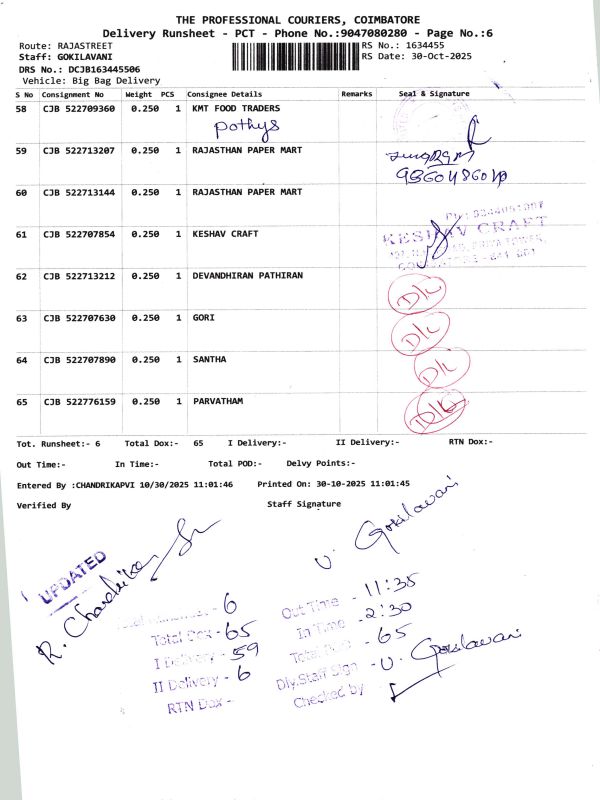 THE PROFESSIONAL COURIERS, COIMBATORE
Delivery Runsheet - PCT - Phone No.:9047080280 - Page No.:6
Route: RAJASTREET
RS No.: 1634455
Staff: GOKILAVANI
RS Date: 30-Oct-2025
DRS No.: DCJB163445506
Vehicle: Big Bag Delivery
S No Consignment No Weight PCS Consignee Details Remarks Seal & Signature
58 CJB 522709360 0.250 1 KMT FOOD TRADERS
Pothys
59 CJB 522713207 0.250 1 RAJASTHAN PAPER MART
60 CJB 522713144 0.250 1 RAJASTHAN PAPER MART
61 CJB 522707854 0.250 1 KESHAV CRAFT
KESHAV CRAFT
62 CJB 522713212 0.250 1 DEVANDHIRAN PATHIRAN D/L
63 CJB 522707630 0.250 1 GORI D/L
64 CJB 522707890 0.250 1 SANTHA D/L
65 CJB 522776159 0.250 1 PARVATHAM D/L
Tot. Runsheet:- 6 Total Dox:- 65 I Delivery:- II Delivery:- RTN Dox:-
Out Time:- In Time:- Total POD:- Delvy Points:-
Entered By :CHANDRIKAPVI 10/30/2025 11:01:46 Printed On: 30-10-2025 11:01:45
Verified By Staff Signature
U. Gokilavani
UPDATED
R. Chandrika
6
Total Dox - 65
I Delivery - 59
II Delivery - 6
RTN Dox -
Out Time - 11:35
In Time - 2:30
65
Dly.Staff Sign - U. Gokilavani
Checked by